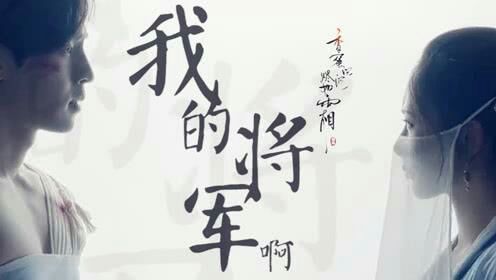 我的将军啊
香蜜沉沉烬如霜